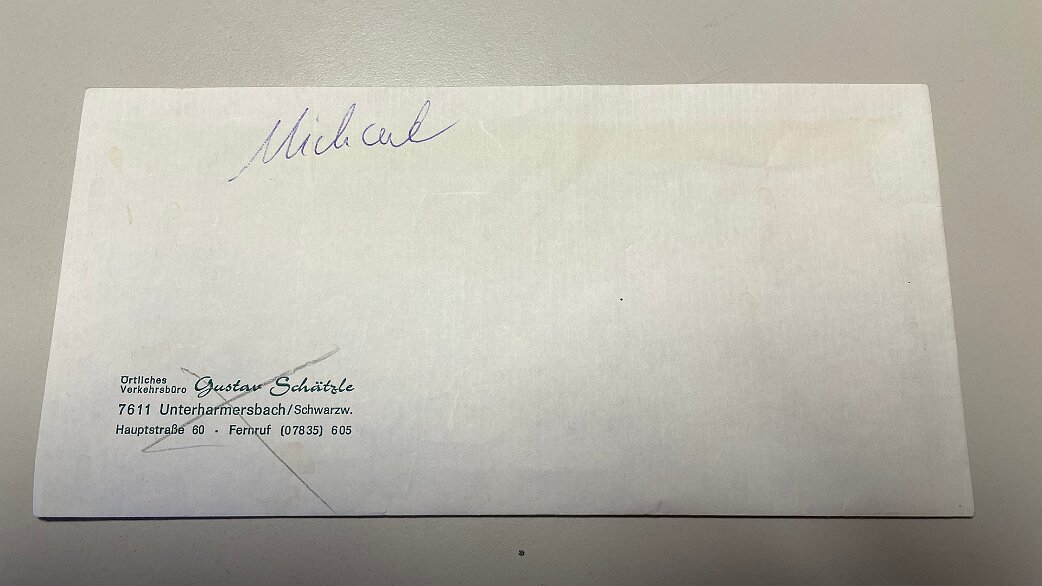 Michael
Örtliches
Verkehrsbüro Gustav Schätzle
7611 Unterharmersbach/Schwarzw.
Hauptstraße 60 - Fernruf (07835) 605